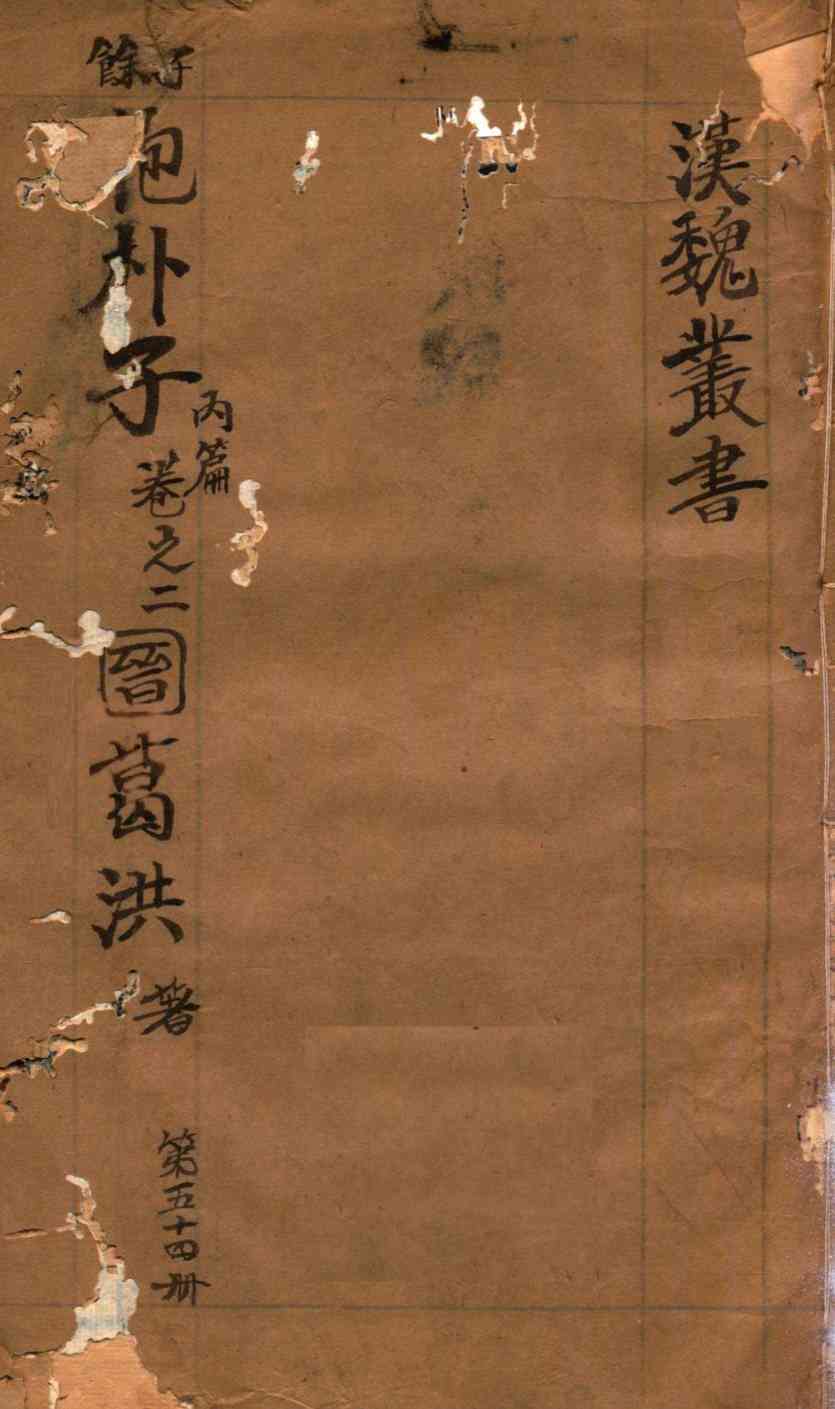 漢魏叢書
子餘
抱朴子
内篇
卷之二
晉
葛洪著
第五十四册